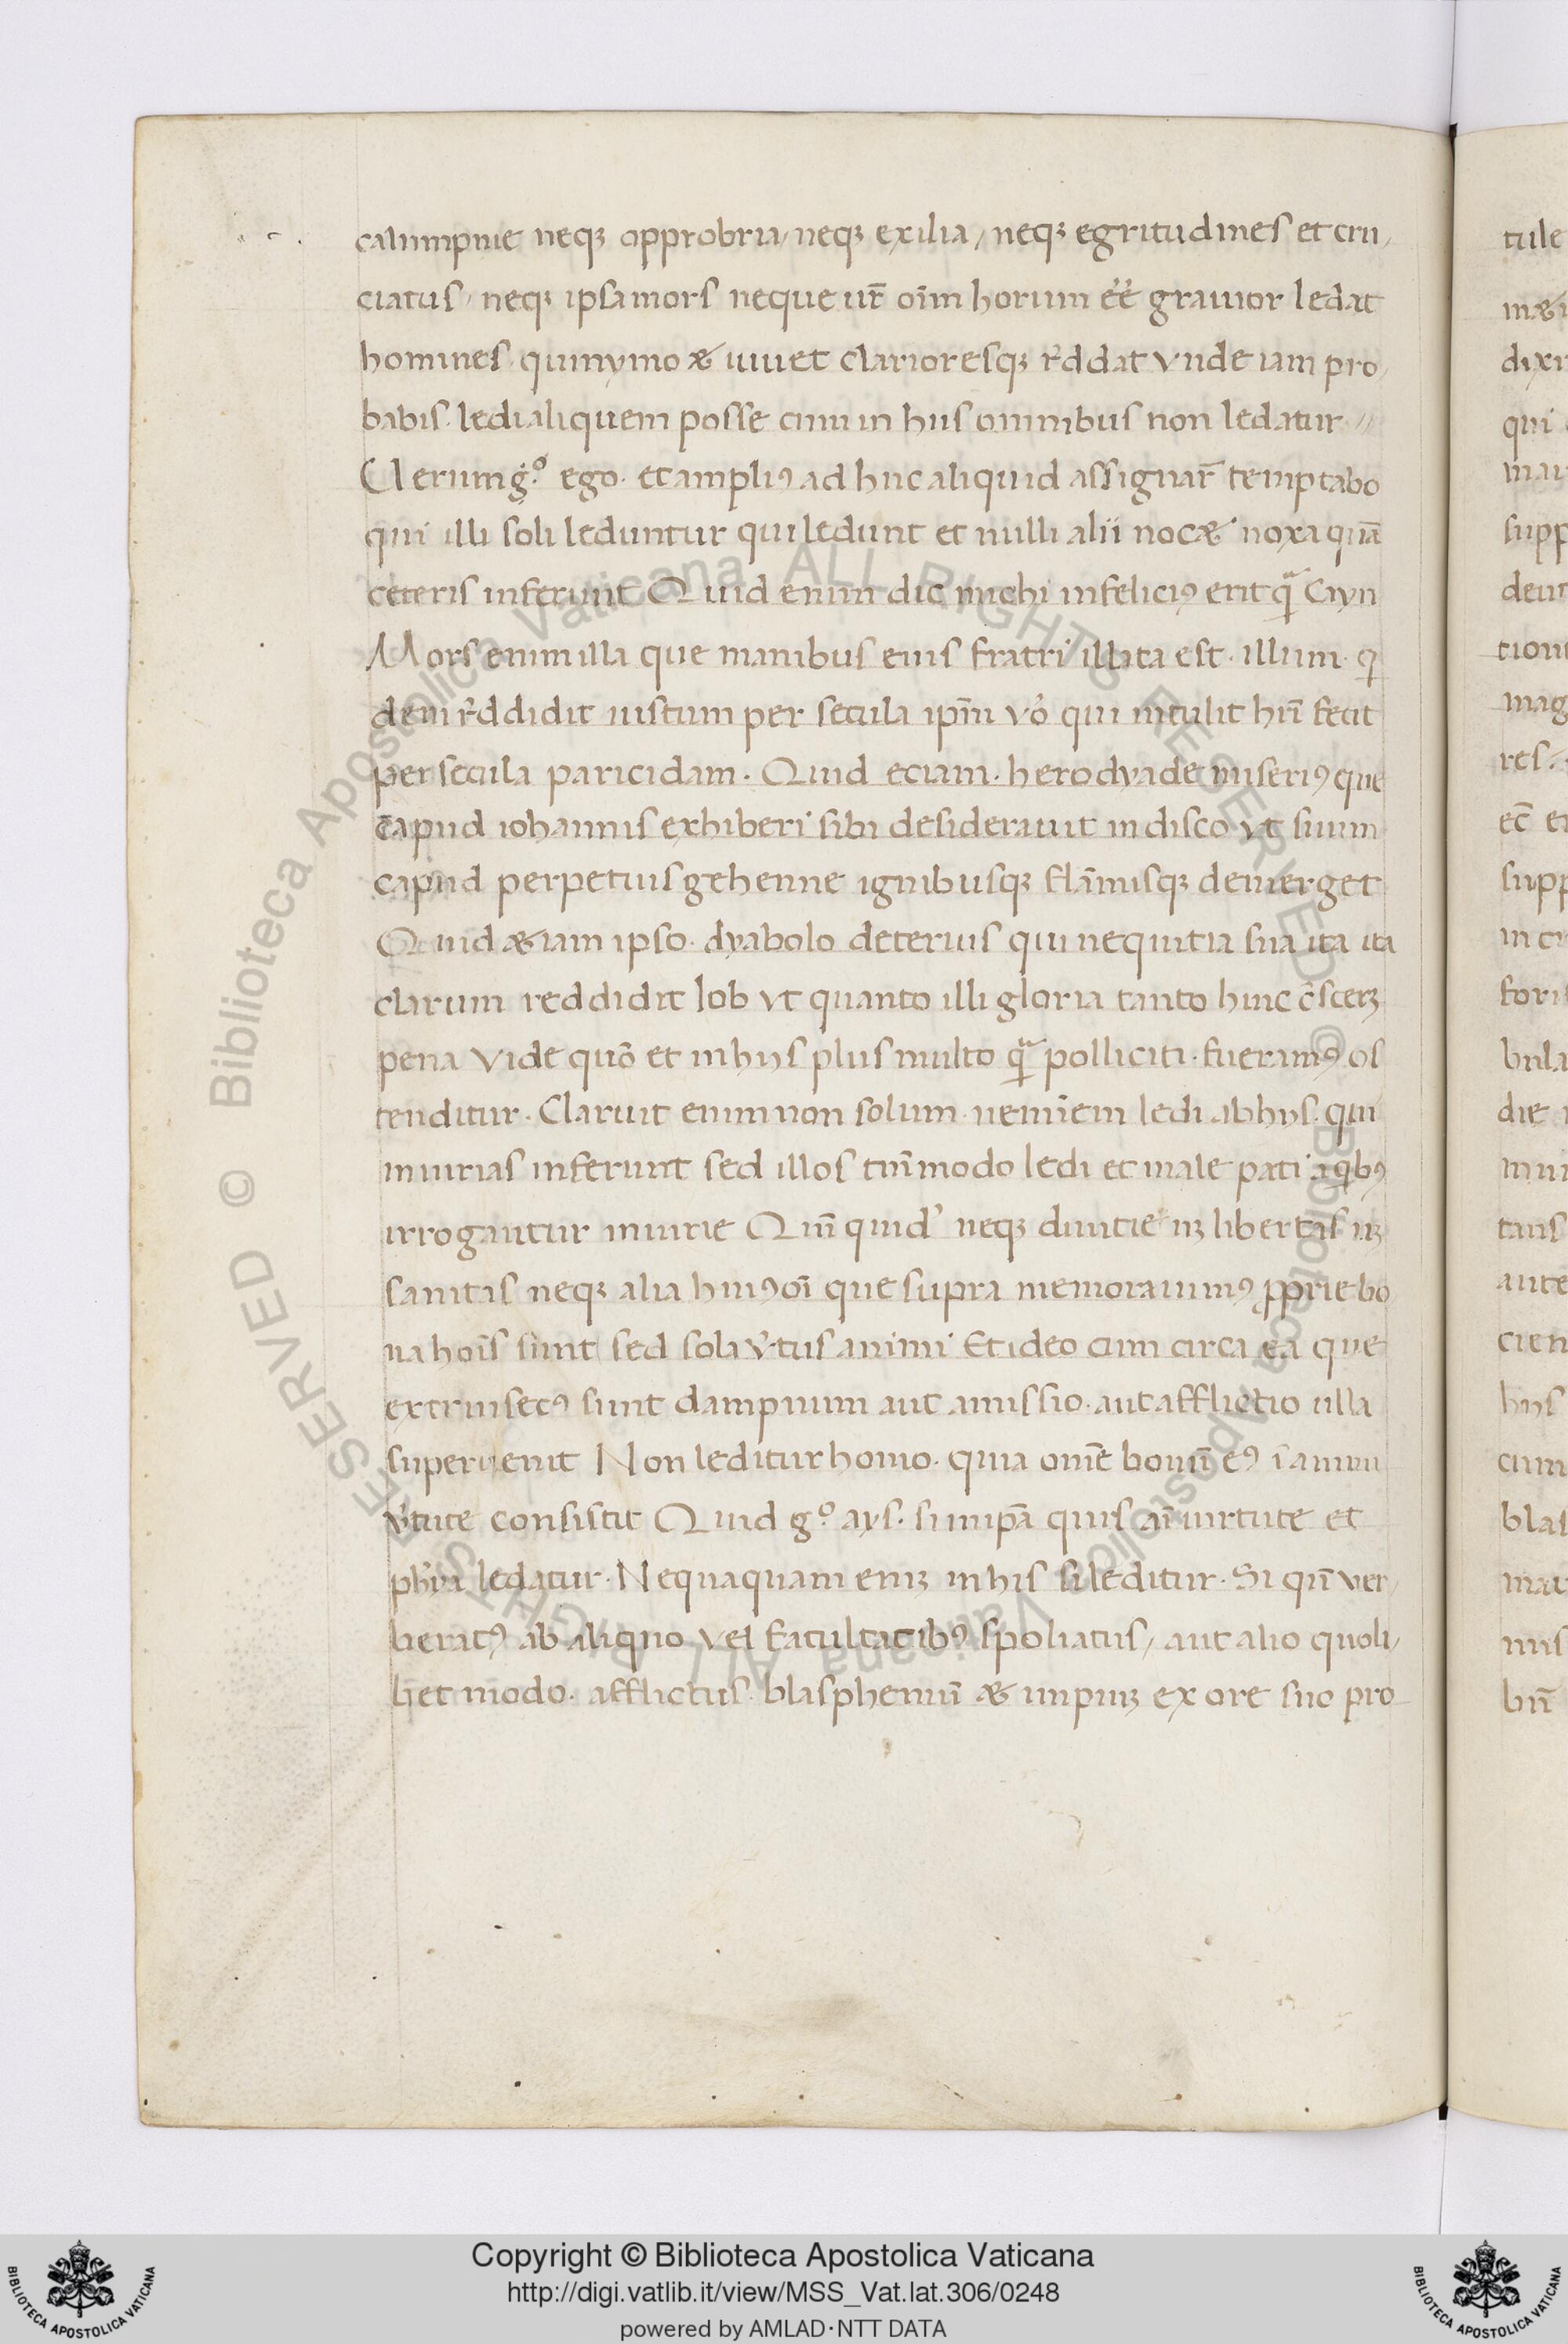 calumpnie neqꝫ opprobria / neqꝫ exilia / neqꝫ egritudines et cru/
ciatus / neqꝫ ipsa mors neque ur̄ oīm horum eē grauior ledat
homines quinymo & iuuet clarioresqꝫ rͤddat vnde iam pro/
babis ledi aliquem posse cum in hiis omnibus non ledatur //
Uerum gͦ ego et ampliꝰ ad huc aliquid assignar̄ temptabo
qui illi soli leduntur qui ledunt et nulli alii noc& noxa quā
ceteris inferunt Quid enim dic michi infeliciꝰ erit qͣ Cayn
Mors enim illa que manibus eius fratri illata est illum q
dem rͤddidit iustum per secula ip̄m vͦ qui intulit hūc fecit
per secula paricidam. Quid eciam herodyade miseriꝰ que
capud iohannis exhiberi sibi desiderauit in disco vt suum
capud perpetuis gehenne ignibusqꝫ flāmisqꝫ demerget
Quid &iam ipso dyabolo deterius qui nequitia sua ita ita
clarum reddidit Iob vt quanto illi gloria tanto huic c̄scerꝫ
pena Vide quō et in hys plus multo qͣ polliciti fueramꝰ os
tenditur. Claruit enim non solum neminem ledi ab hys qui
iniurias inferunt sed illos tm̄modo ledi et male pati a qͥbꝰ
irrogantur iniurie Qm̄ quidͤ neqꝫ diuitie nꝫ libertas nꝫ
sanitas neqꝫ alia huiꝰoī que supra memorauimꝰ ꝓprie bo
na hoīs sunt sed sola v̓tus animi Et ideo cum circa ea que
extrinsecꝰ sunt dampnum aut amissio aut afflictio illa
superuenit Non leditur homo quia om̄e bonū eꝰ ī animi
v̓tute consistit Quid gͦ ays si in ip̄a quis aī uirtute et
ph̄ia ledatur. Nequaquam eniꝫ in his si leditur. Si qn̄ ver/
beratꝰ ab aliquo vel facultatibꝰ spoliatus / aut alio quoli/
bet modo afflictus blasphemū & impiuꝫ ex ore suo pro
tule
dixi
qui
mau
supp
deut
tion
mag
res.
ec̄ e
supp
in cr
fori
bula
die
tuis
aute
cien
hiis
cum
blas
mis
RESERVED © Biblioteca Apostolica Vaticana ALL RIGHTS RESERVED © Biblioteca Apostolica Vaticana ALL RIGHTS
Copyright © Biblioteca Apostolica Vaticana
http://digi.vatlib.it/view/MSS_Vat.lat.306/0248
powered by AMLAD·NTT DATA
BIBLIOTECA APOSTOLICA VATICANA
BIBLIOTECA APOSTOLICA VATICANA